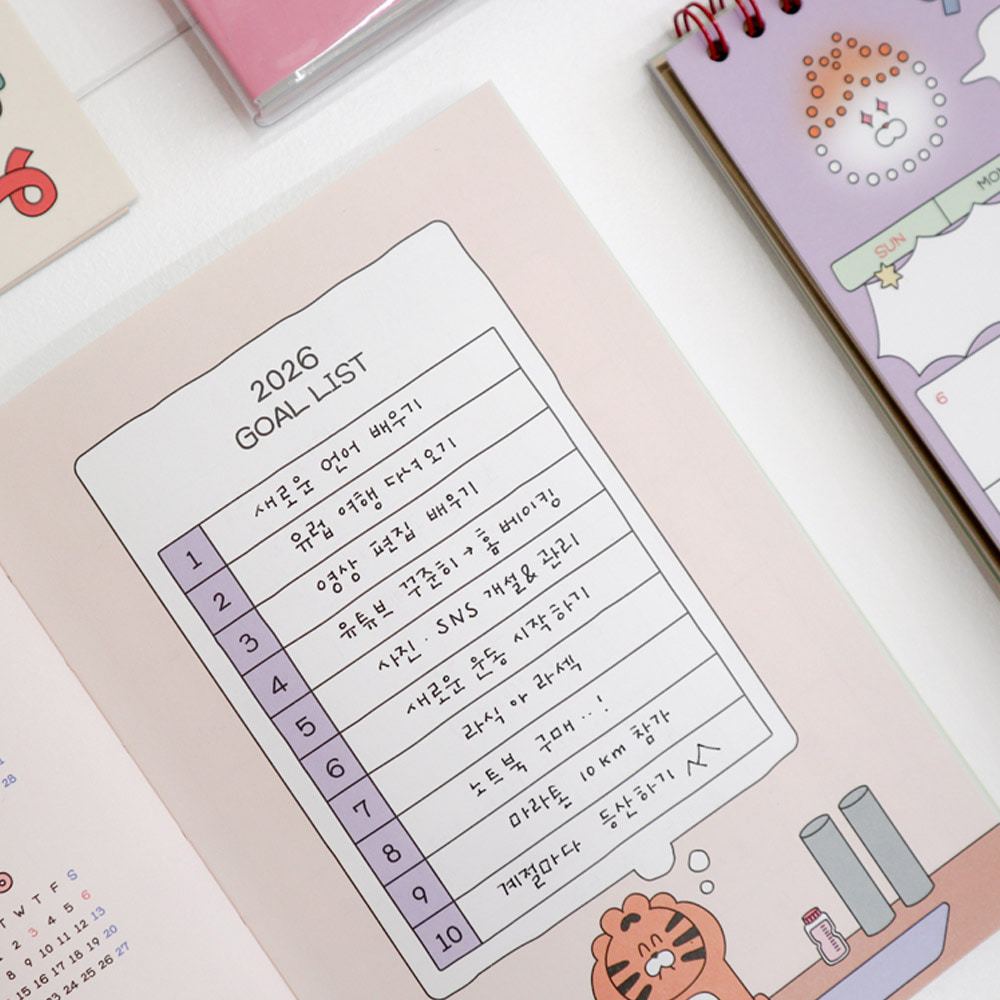 2026
GOAL LIST
1 새로운 언어 배우기
2 유럽 여행 다녀오기
3 영상 편집 배우기
4 유튜브 꾸준히 → 홈 베이킹
5 사진 · SNS 개설 & 관리
6 새로운 운동 시작하기
7 라식 or 라섹
8 노트북 구매 ··!
9 마라톤 10km 참가
10 계절마다 등산하기
SUN MON
6
28
T W T F S
2 3 4 5 6
8 9 10 11 12 13
15 16 17 18 19 20
22 23 24 25 26 27